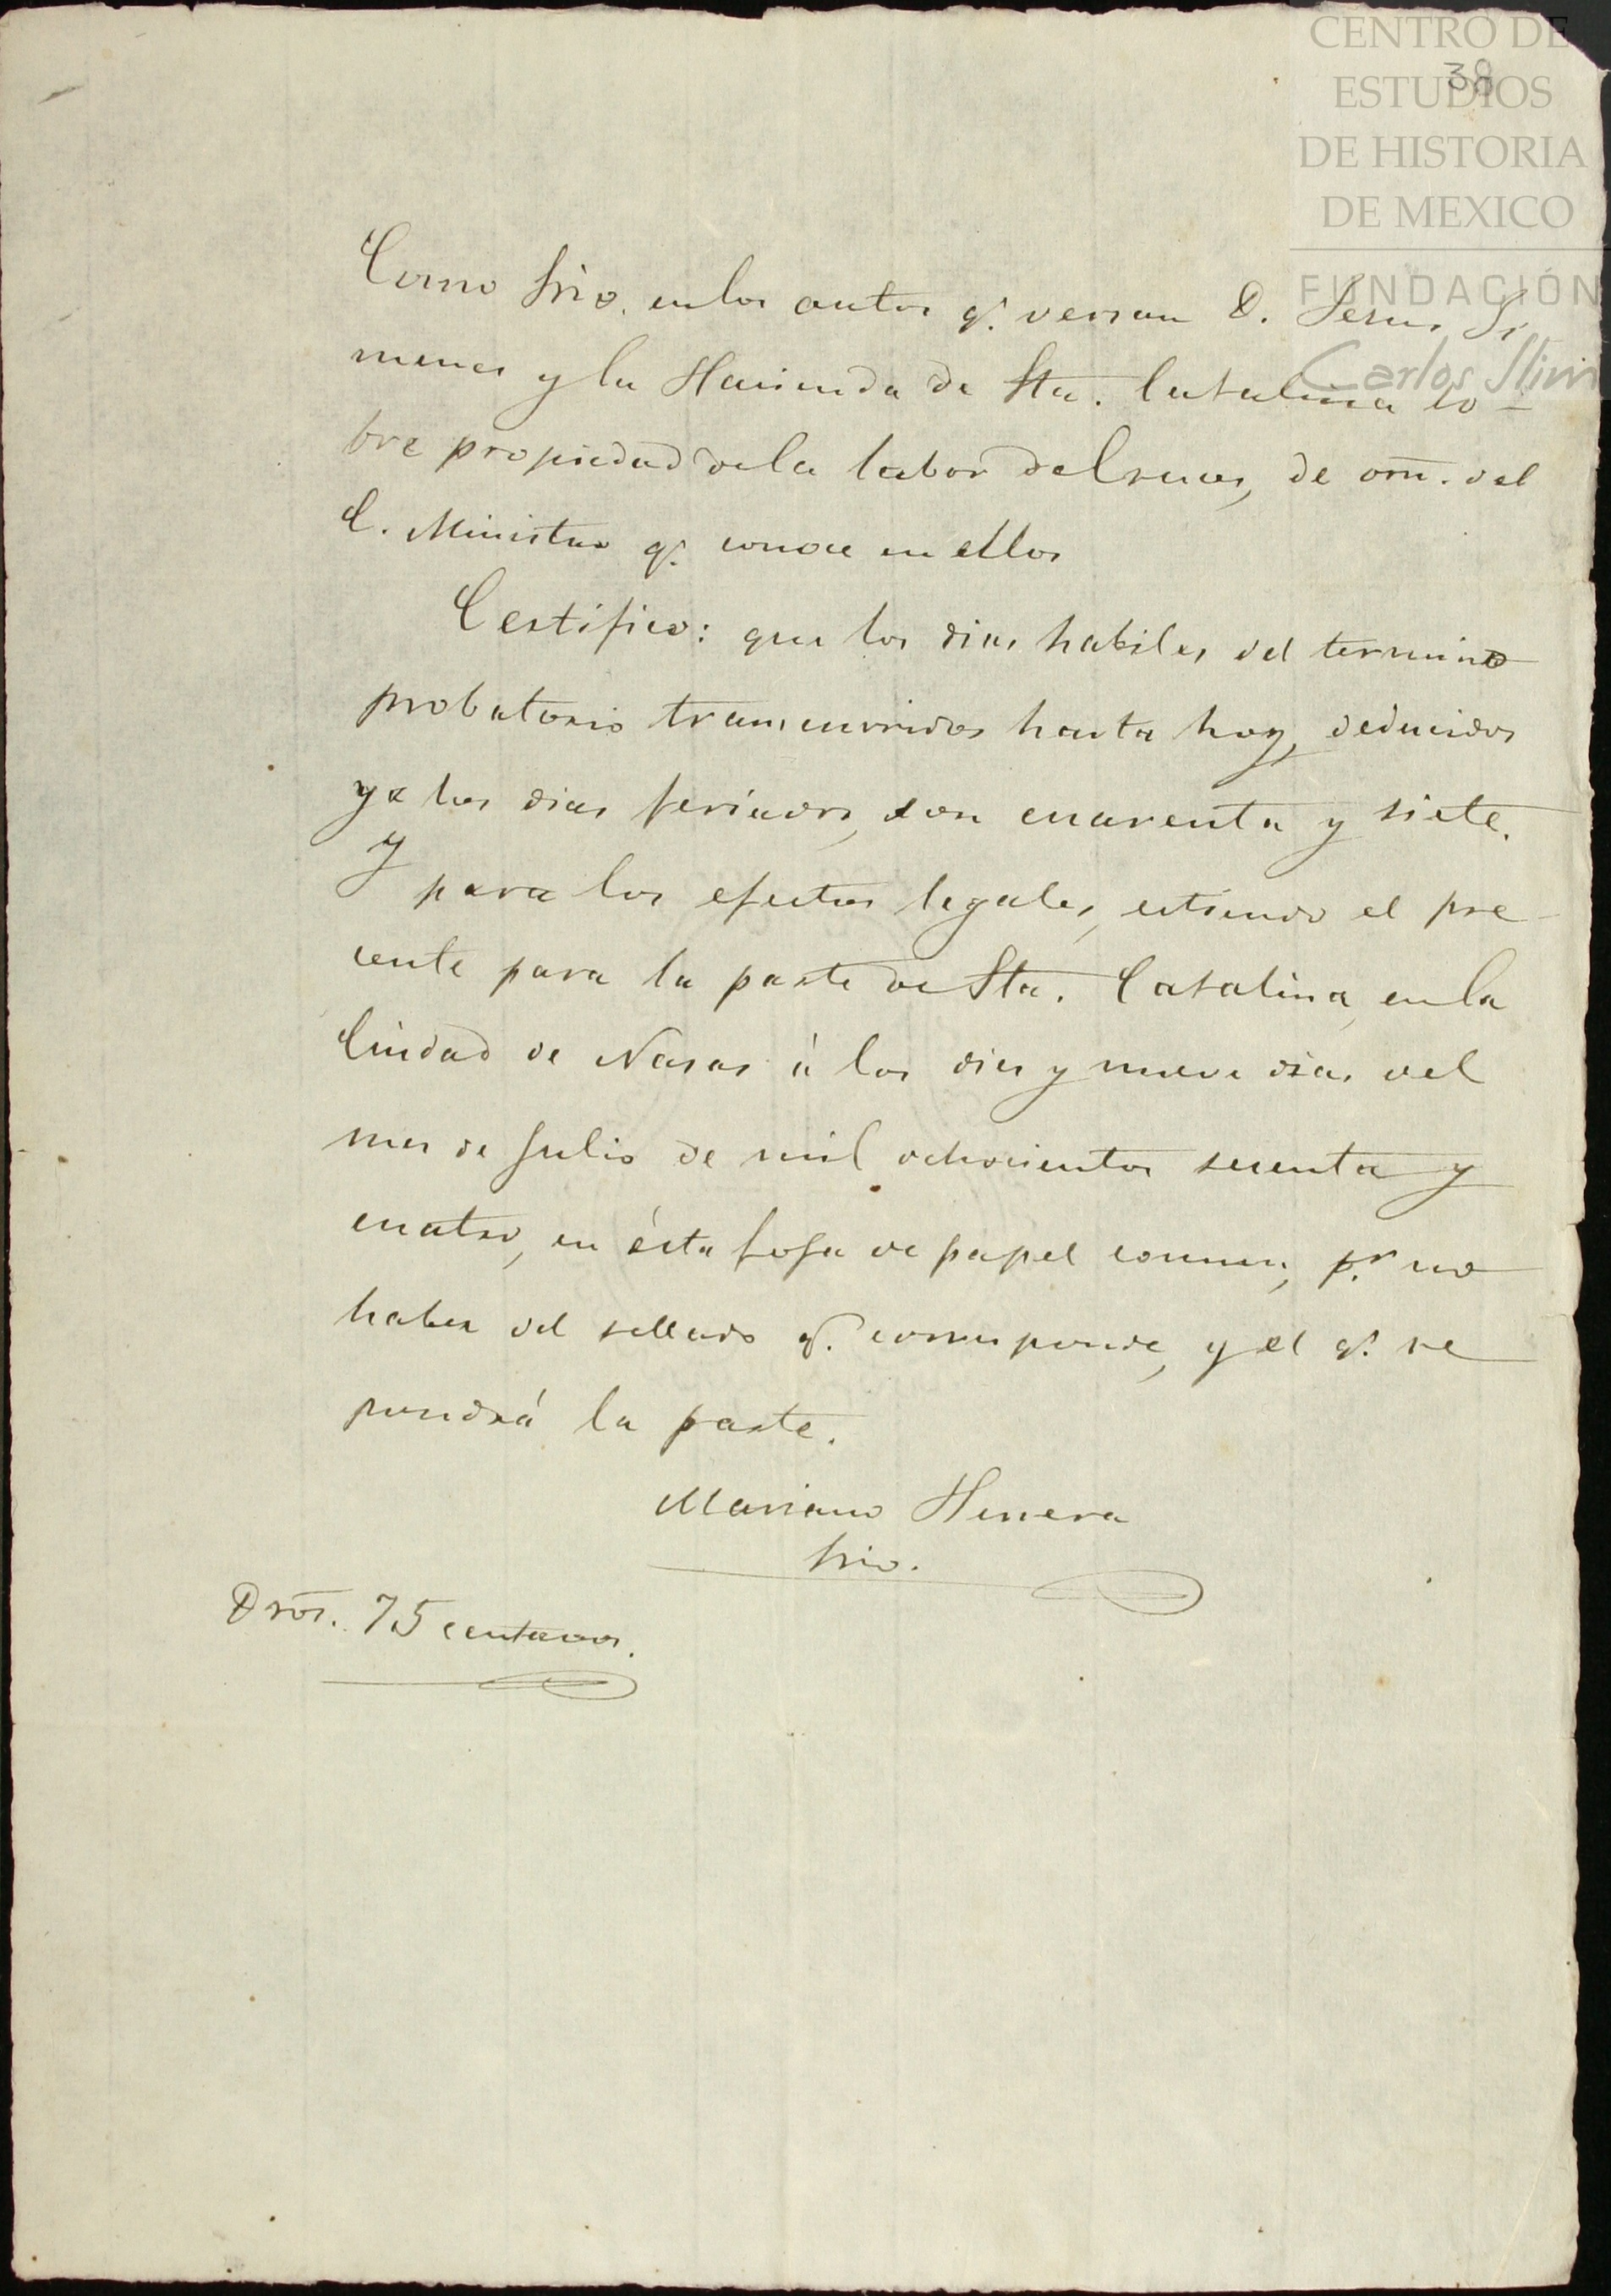 CENTRO DE
ESTUDIOS
DE HISTORIA
DE MEXICO
FUNDACIÓN
Carlos Slim
38
Como Srio. en los autos q.e versan D. Jesus Ji
menes y la Hacienda de Sta. Catalina so-
bre propiedad de la labor del de orn. del
C. Ministro q.e conoce en ellos
Certifico: que los dias habiles del termino
probatorio transcurridos hasta hoy, deducidos
ya los dias feriados, son cuarenta y siete.
y para los efectos legales, estiendo el pre-
cente para la parte de Sta. Catalina, en la
Ciudad de Nasas á los dies y nueve dias del
mes de Julio de mil ochocientos sesenta y
cuatro, en ésta foja de papel comun, p.r no
haber del sellado q.e corresponde, y el q.e re
pondrá la parte.
Mariano Herrera
Srio.
Dros. 75 centavos.